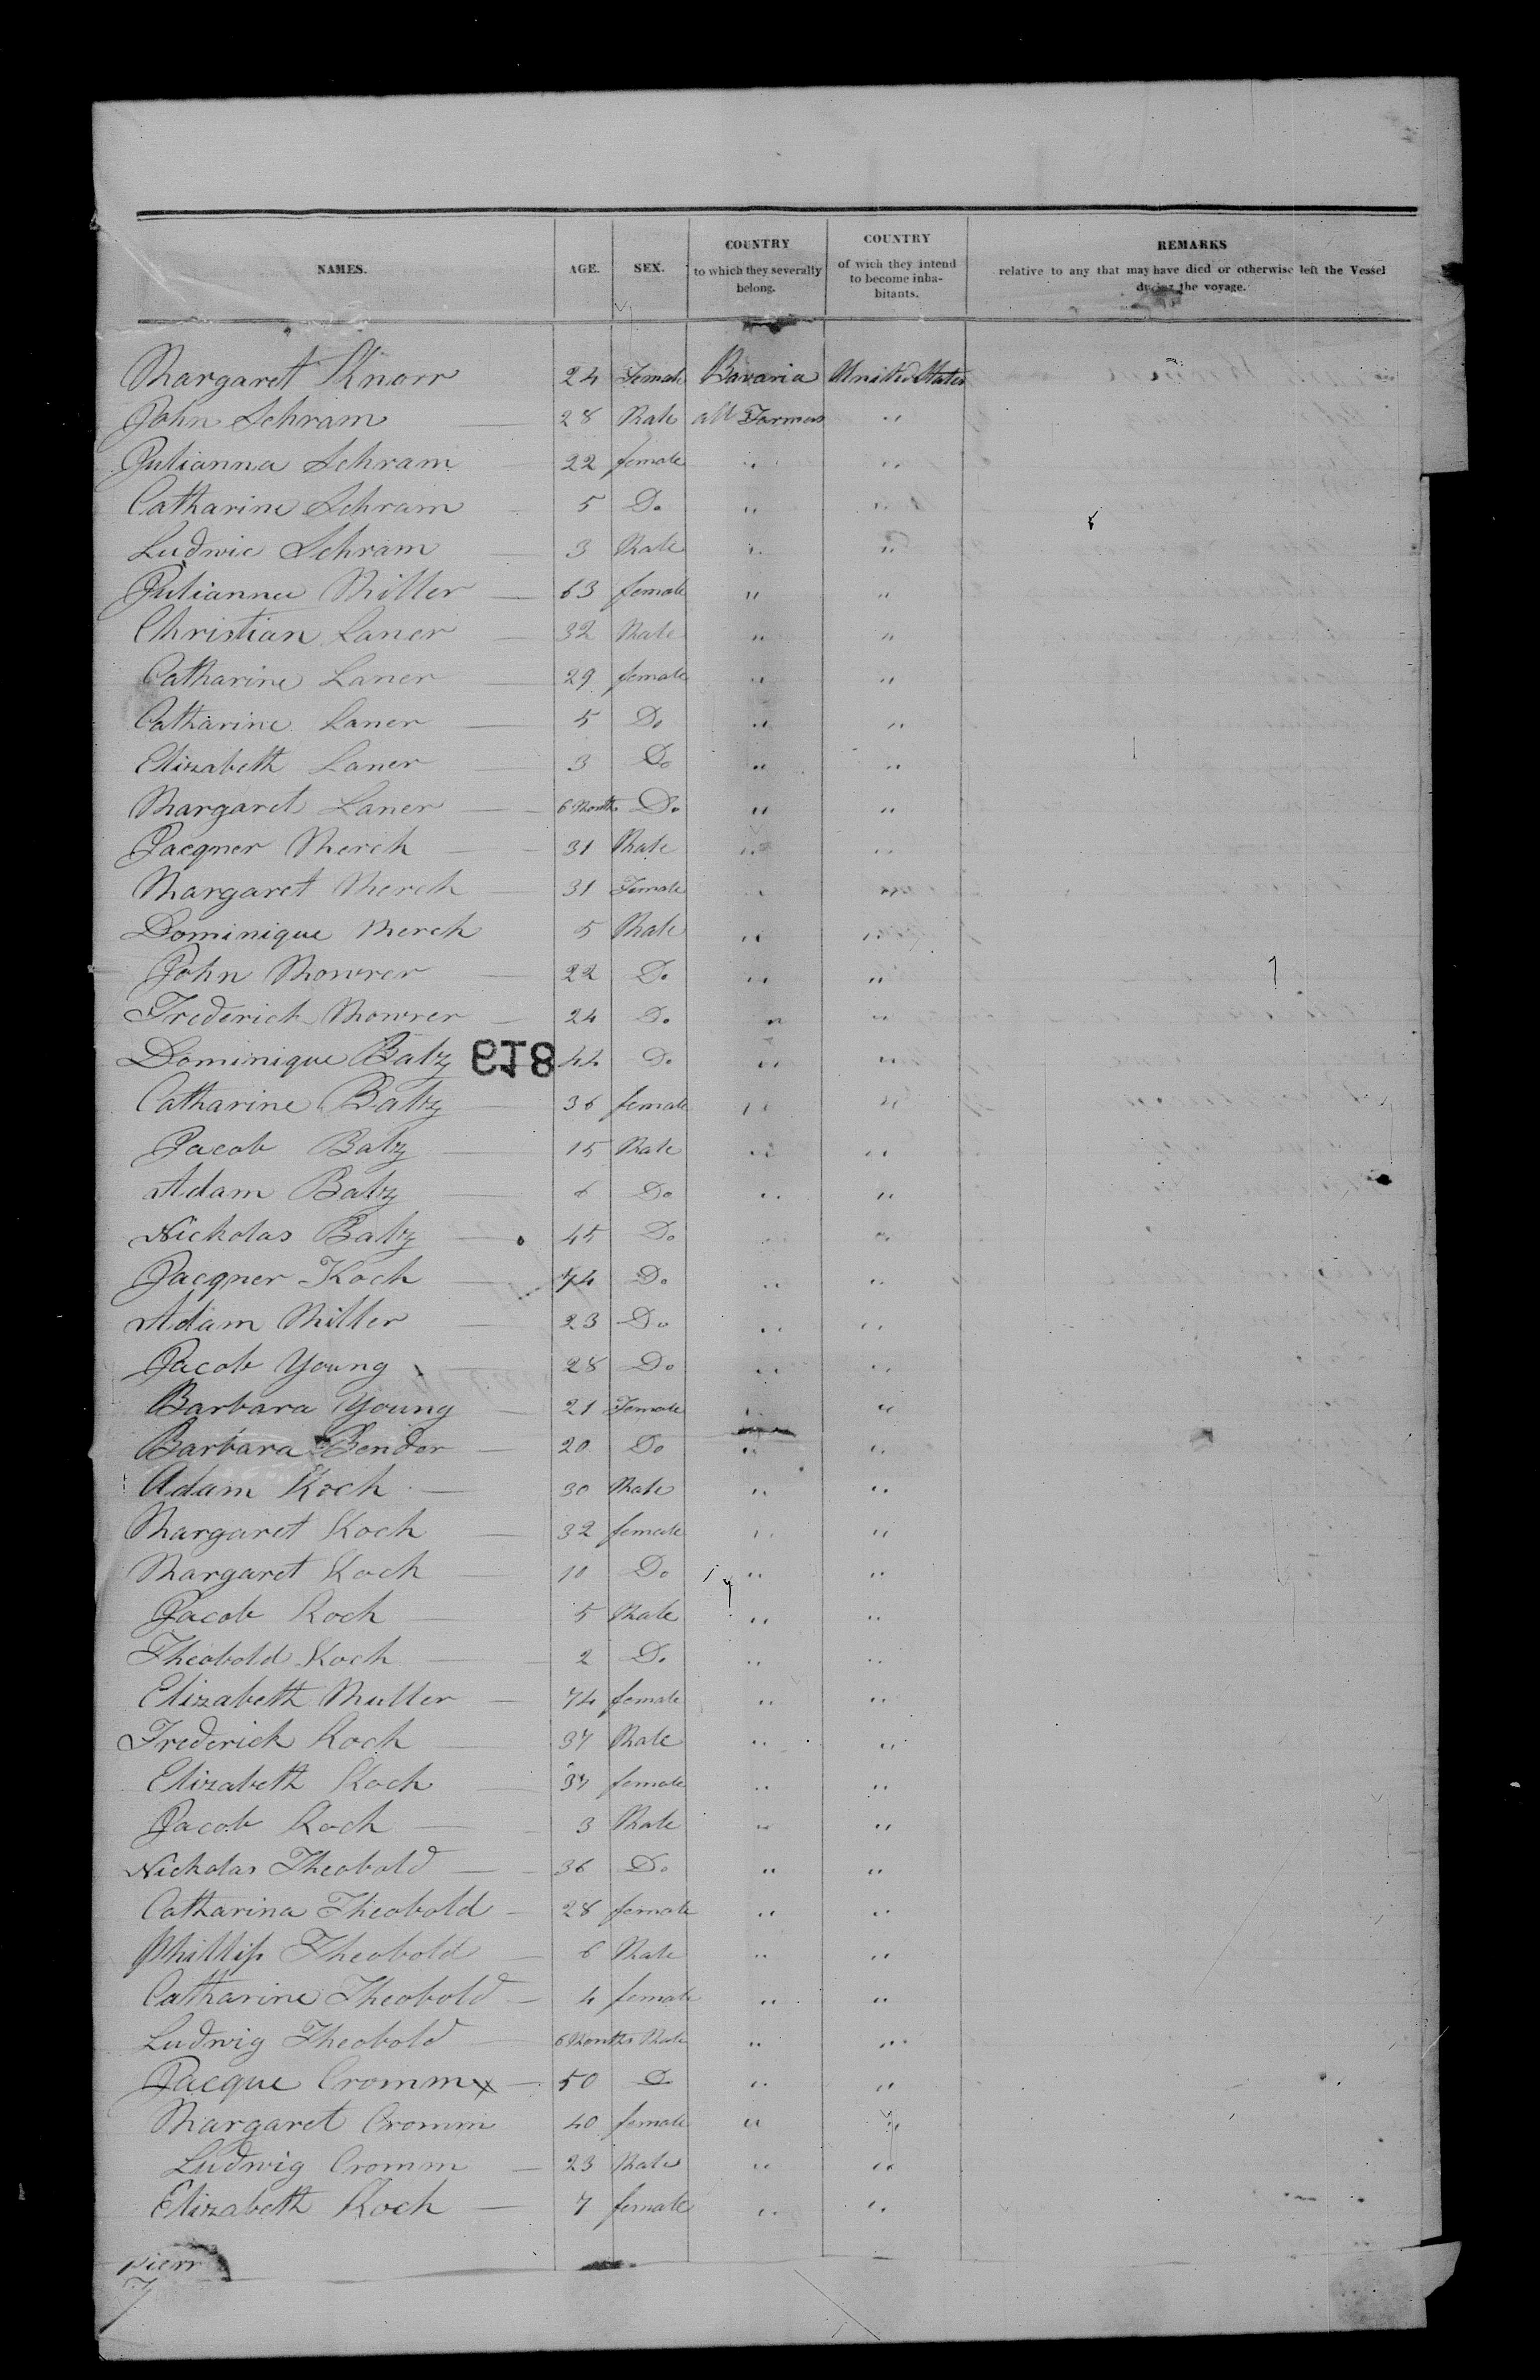 NAMES. AGE. SEX. COUNTRY to which they severally belong. COUNTRY of wich they intend to become inhabitants. REMARKS relative to any that may have died or otherwise left the Vessel during the voyage.
Margaret Knorr 24 Female Bavaria United States
John Schram — 28 Male all Farmers "
Julianna Schram — 22 female " "
Catharine Schram 5 Do " "
Ludwic Schram — 3 Male " "
Julianna Miller — 63 female " "
Christian Laner — 32 Male " "
Catharine Laner — 29 female " "
Catharine Laner — 5 Do " "
Elizabeth Laner — 3 Do " "
Margaret Laner — 6 Months Do " "
Jacqner Merch — 31 Male " "
Margaret Merch — 31 Female " "
Dominique Merch 5 Male " "
John Mowrer — 22 Do " "
Frederick Mowrer — 24 Do " "
Dominique Batz 819 44 Do " "
Catharine Batz — 36 female " "
Jacob Batz — 15 Male " "
Adam Batz — 6 Do " "
Nickolas Batz — 45 Do " "
Jacqner Koch — 74 Do " "
Adam Miller — 23 Do " "
Jacob Young — 28 Do " "
Barbara Young — 21 Female " "
Barbara Bender — 20 Do " "
Adam Koch — 30 Male " "
Margaret Koch — 32 female " "
Margaret Koch — 10 Do " "
Jacob Koch — 5 Male " "
Theobold Koch — 2 Do " "
Elizabeth Muller — 74 female " "
Frederick Koch — 37 Male " "
Elizabeth Koch — 37 female " "
Jacob Koch — 3 Male " "
Nickolas Theobold — 36 Do " "
Catharina Theobold — 28 female " "
Phillip Theobold — 6 Male " "
Catharine Theobold — 4 female " "
Ludwig Theobold — 6 Months Male " "
Jacque Cromm x — 50 D " "
Margaret Cromm 40 female " "
Ludwig Cromm — 23 Male " "
Elizabeth Koch — 7 female " "
pierr